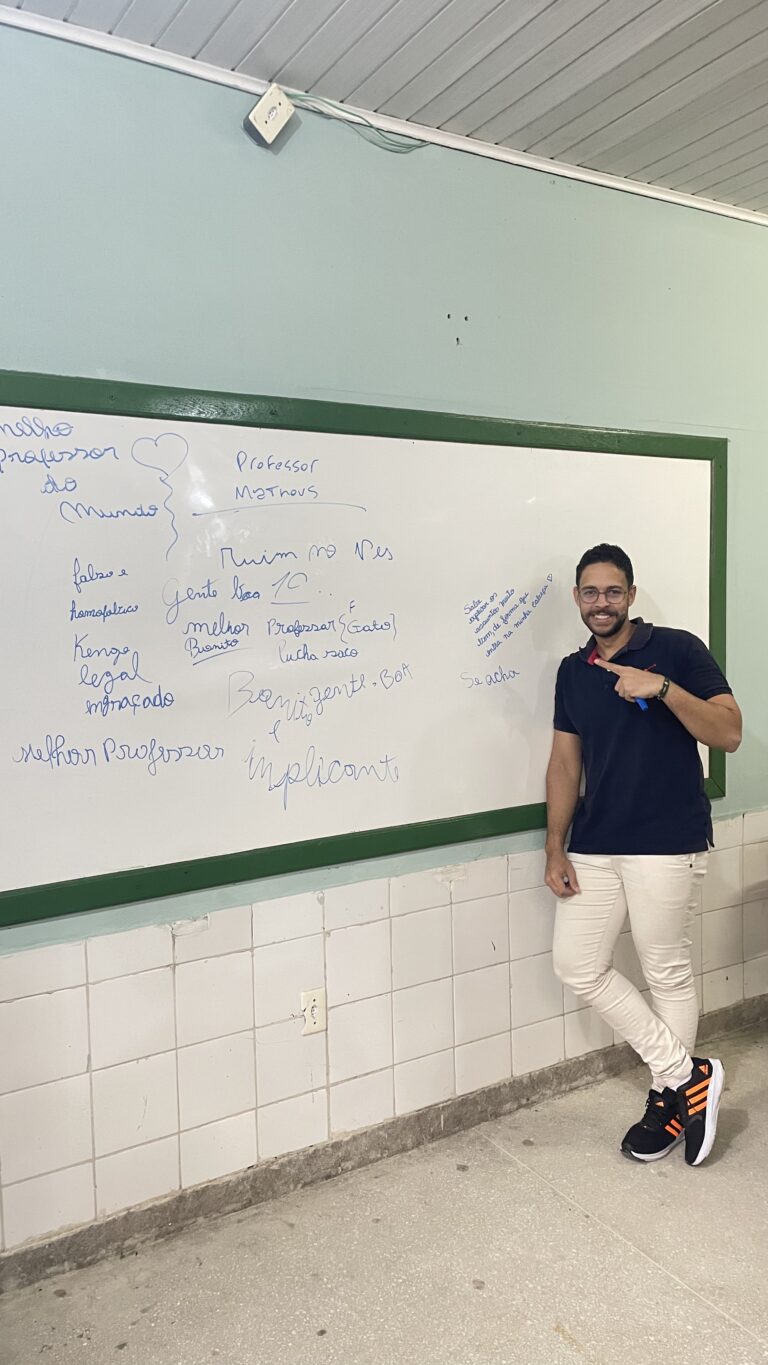 melho
Professor
do
Mundo
Professor
Matheus
falso e
homofobico
Kenga
legal
engraçado
Melhor Professor
Ruim no Ves
Gente boa 10..
melhor Professor {Gato}
F
Bionito
Pucha saco
Bionix gente. BOA
implicante
Sabe
explicar os
assuntos muito
bem, de forma que
entra na minha cabeça ♡
Se acha